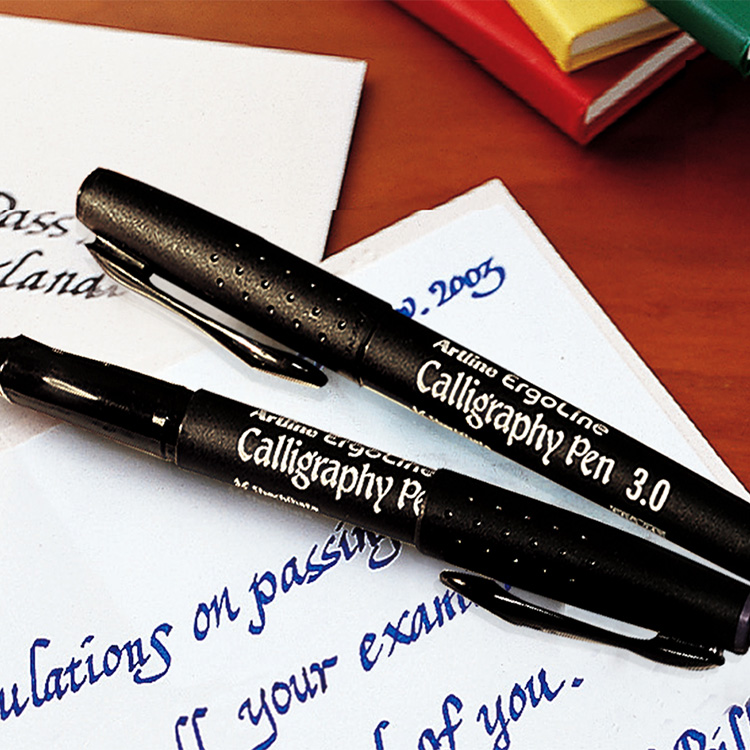 Pass
land
2003
Artline ErgoLine
Calligraphy Pen 3.0
Artline ErgoLine
Calligraphy Pe
ulations on passing
your exam
of you.